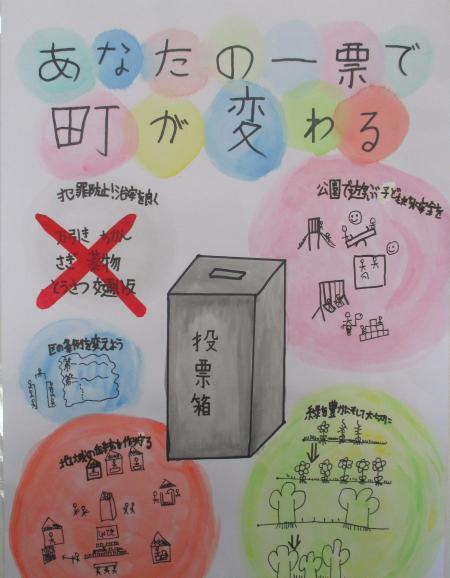 あなたの一票で
町が変わる
犯罪防止!治安を良く
万引き ちかん
さぎ 薬物
とうさつ 交通い反
公園で遊ぶ子ども達安全を
投票箱
区の条例を変えよう
緑を豊かにそして大切に
地域の